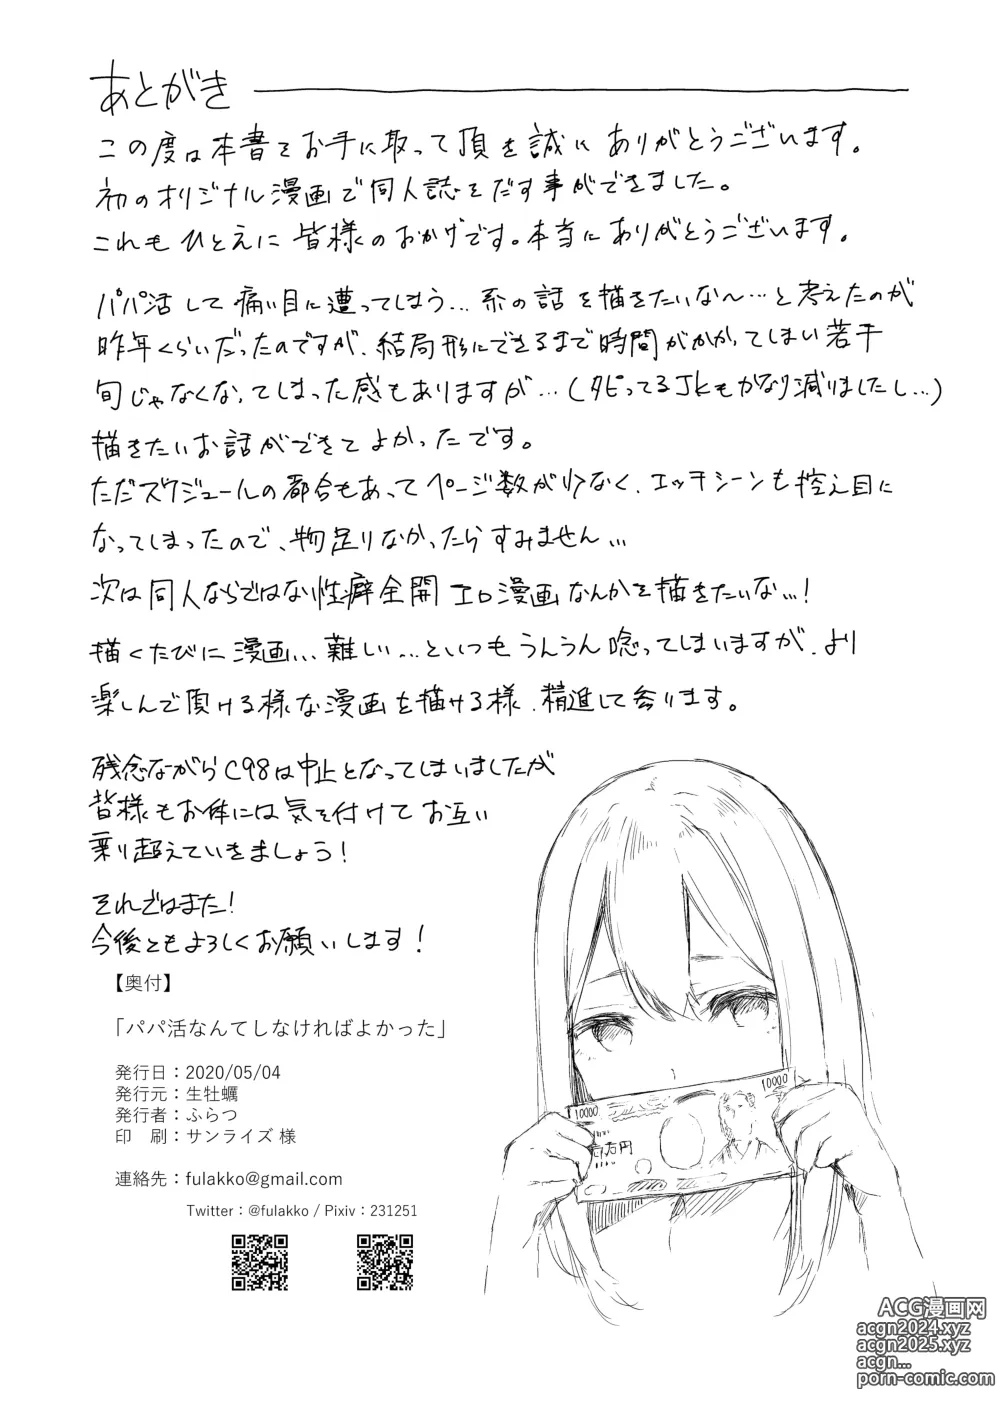 あとがき
この度は本書をお手に取って頂き誠にありがとうございます。
初のオリジナル漫画で同人誌をだす事ができました。
これもひとえに皆様のおかげです。本当にありがとうございます。
パパ活して痛い目に遭ってしまう…系の話を描きたいな～…と考えたのが
昨年くらいだったのですが、結局形にできるまで時間がかかってしまい若干
旬じゃなくなってしまった感もありますが…（タピってるJKもかなり減りましたし…）
描きたいお話ができてよかったです。
ただスケジュールの都合もあってページ数が少なく、エッチシーンも控え目に
なってしまったので、物足りなかったらすみません…
次は同人ならではな性癖全開エロ漫画なんかを描きたいな…！
描くたびに漫画…難しい…といつもうんうん唸ってしまいますが、より
楽しんで頂ける様な漫画を描ける様、精進して参ります。
残念ながらC98は中止となってしまいましたが
皆様もお体には気を付けてお互い
乗り超えていきましょう！
それではまた！
今後ともよろしくお願いします！
【奥付】
「パパ活なんてしなければよかった」
発行日：2020/05/04
発行元：生牡蠣
発行者：ふらつ
印　刷：サンライズ 様
連絡先：fulakko@gmail.com
Twitter：@fulakko / Pixiv：231251
10000
10000
壱万円
ACG漫画网
acgn2024.xyz
acgn2025.xyz
acgn...
porn-comic.com